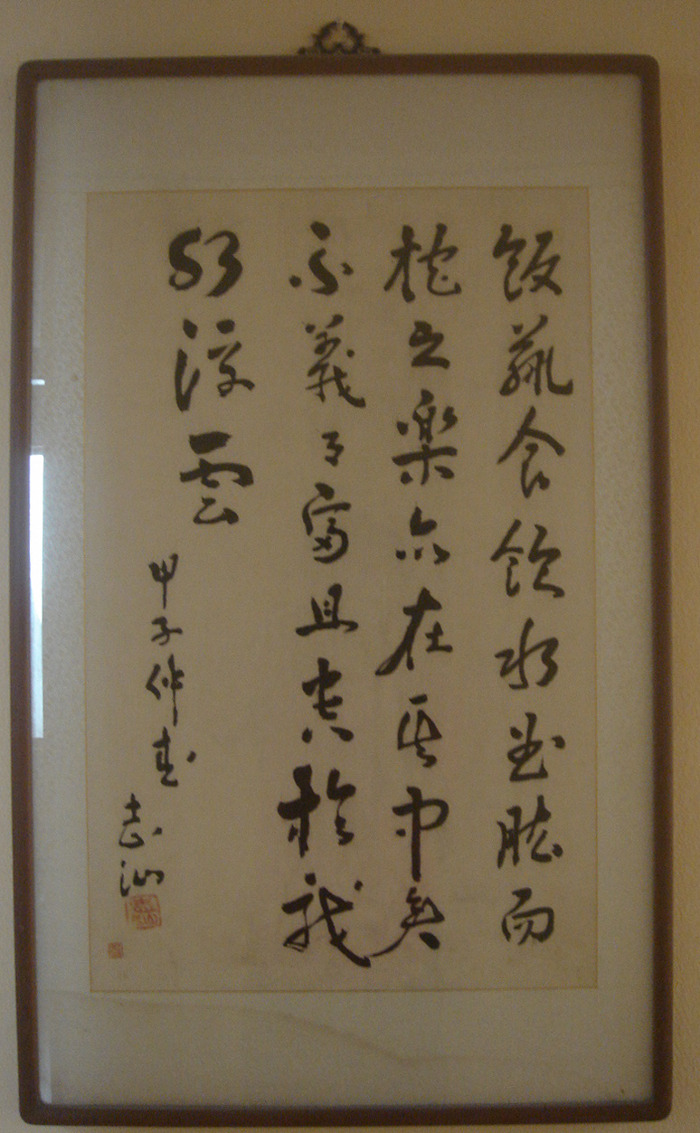 飯蔬食飲水曲肱而
枕之樂亦在其中矣
不義而富且貴於我
如浮雲
甲子仲春
志汕